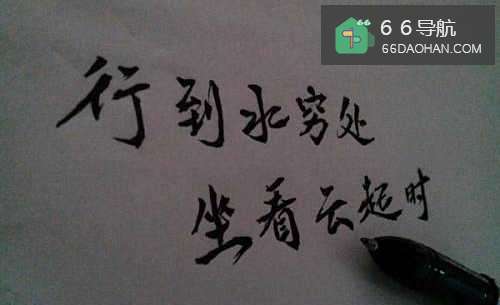 66导航
66DAOHAN.COM
行到水穷处
坐看云起时